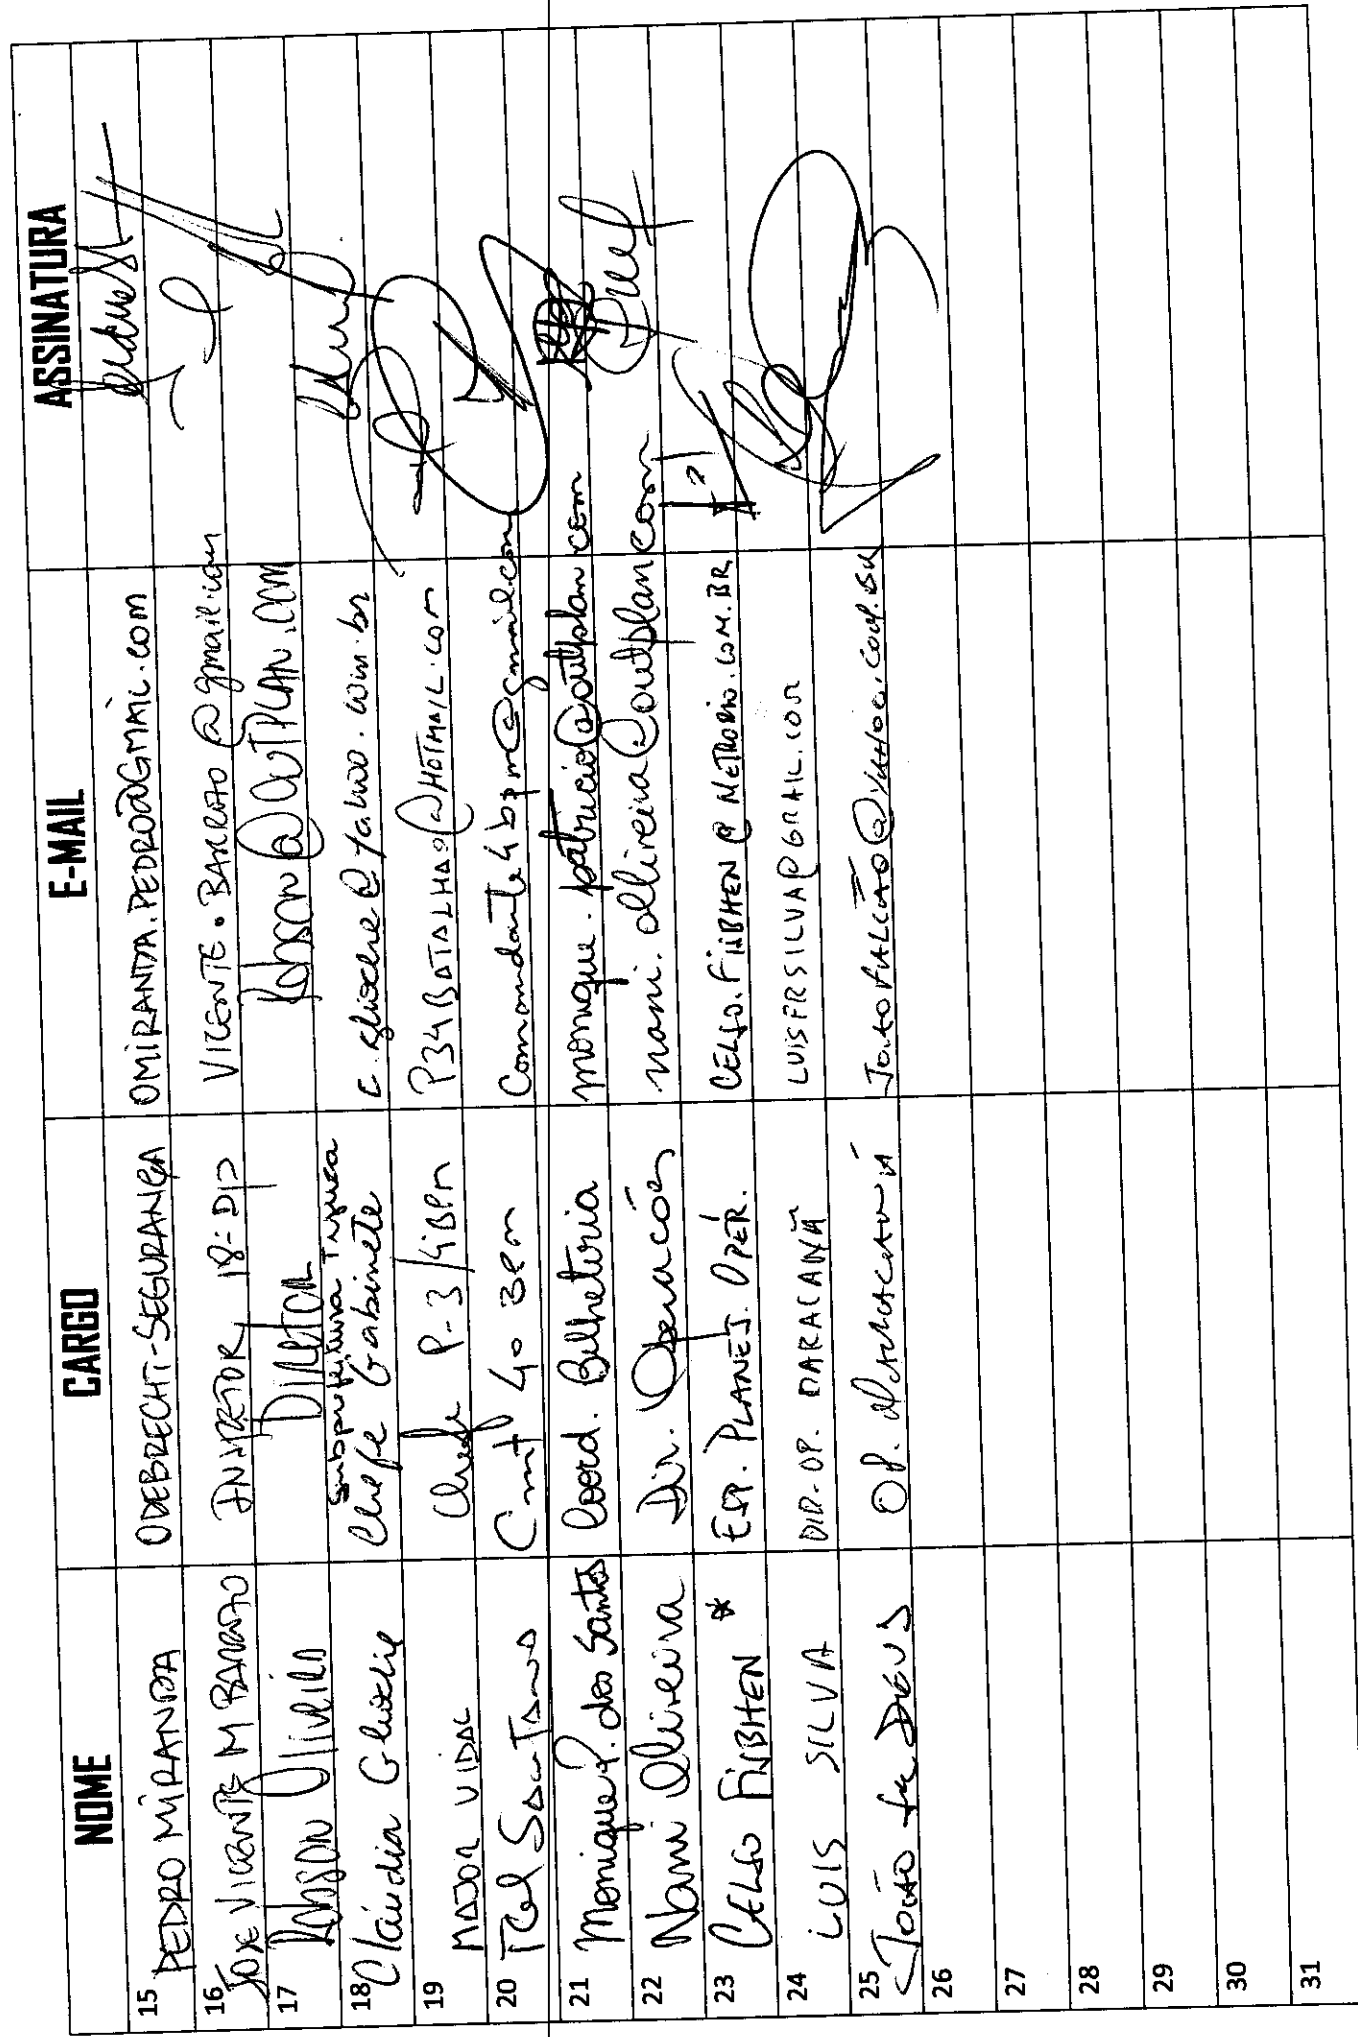 NOME CARGO E-MAIL ASSINATURA
15 PEDRO MIRANDA ODEBRECHT-SEGURANÇA OMIRANDA.PEDRO@GMAIL.COM
16 JOSE VICENTE M BARRETO 18ª DP VICENTE.BARRETO@gmail.com
17 Robson Oliveira DIRETOR Robson@OUTPLAN.COM
18 Claudia Subprefeitura Tijuca
Chefe Gabinete @yahoo.com.br
19 MAJOR VIDAL Chefe P-3/4BPM P34BATALHAO@HOTMAIL.COM
20 TCel Santana Cmt 4º BPM Comandante4bpm@gmail.com
21 Monique P. dos Santos Coord. Bilheteria monique.patricio@outplan.com
22 Nani Oliveira Dir. Operações nani.oliveira@outplan.com
23 CELSO * ESP. PLANEJ. OPER. @METRORIO.COM.BR
24 LUIS SILVA DIR. OP. MARACANÃ LUISFRSILVA@GMAIL.COM
25 João de Deus OP. Maracanã
26
27
28
29
30
31